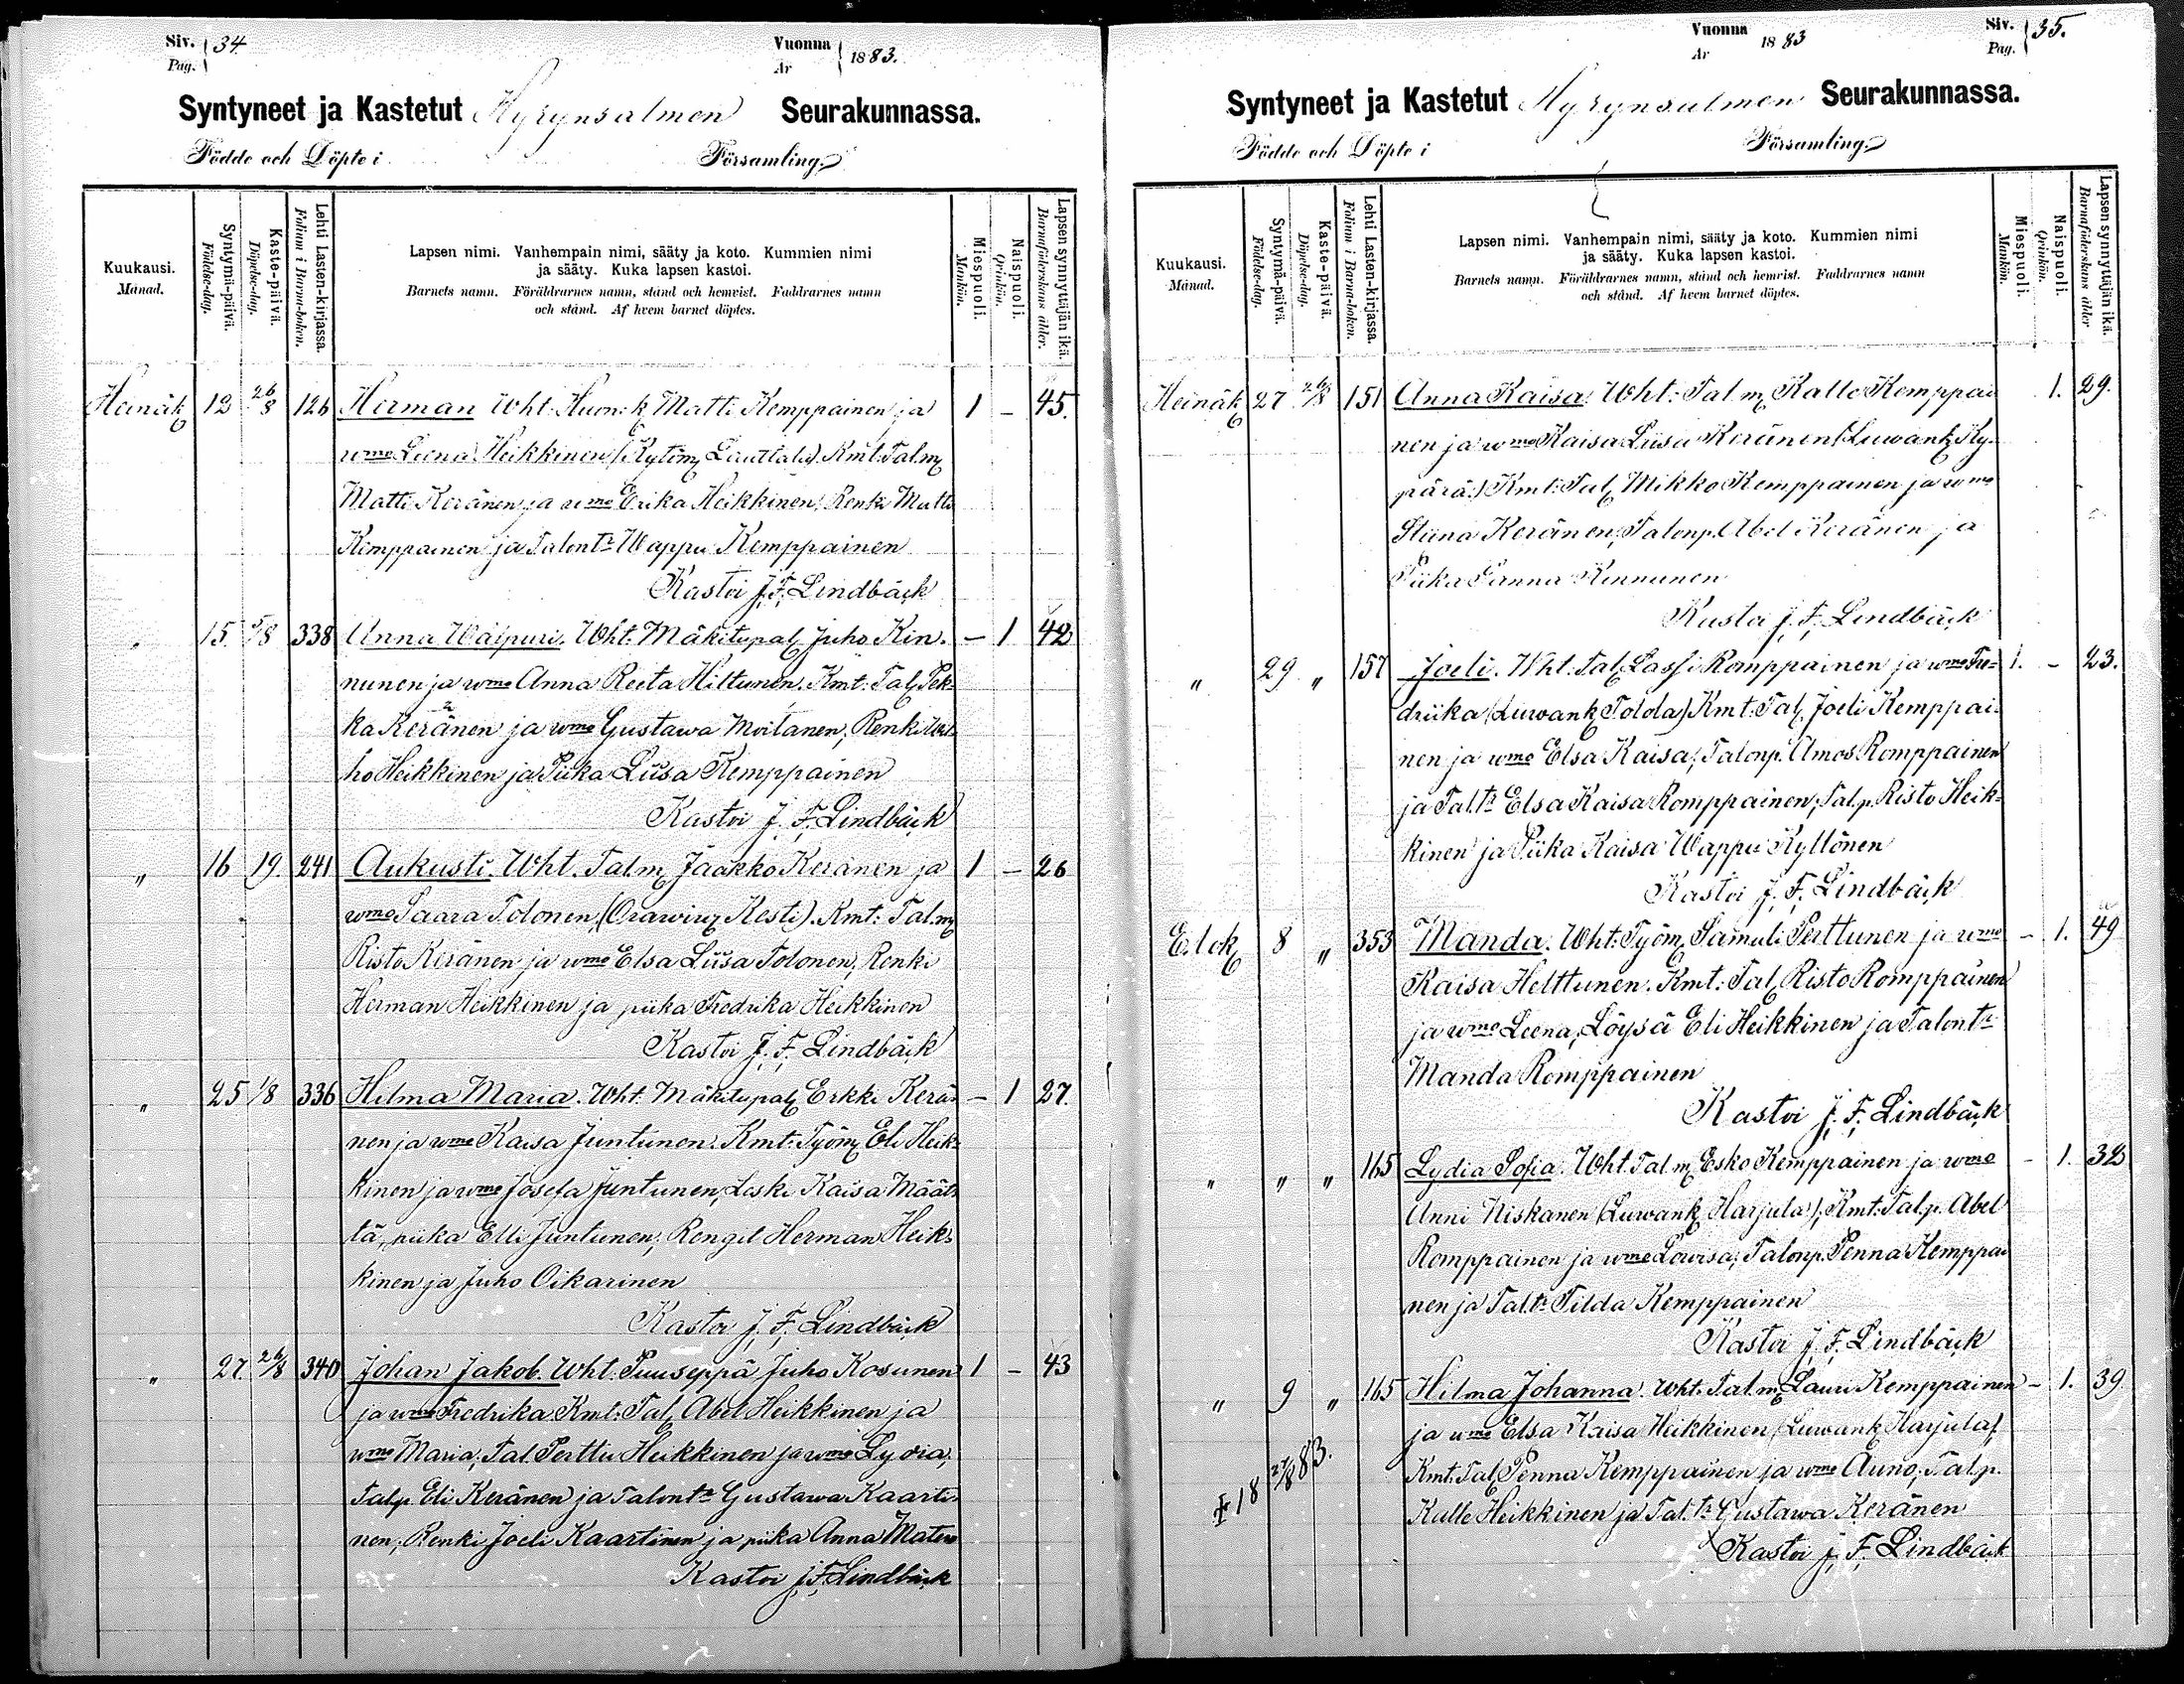 Siv. 34.
Pag.
Vuonna 1883.
År
Syntyneet ja Kastetut Hyrynsalmen Seurakunnassa.
Födde och Döpte i Församling.
Kuukausi.
Månad.
Syntymä-päivä.
Födelse-dag.
Kaste-päivä.
Döpelse-dag.
Lehti Lasten-kirjassa.
Folium i Barna-boken.
Lapsen nimi. Vanhempain nimi, sääty ja koto. Kummien nimi
ja sääty. Kuka lapsen kastoi.
Barnets namn. Föräldrarnes namn, stånd och hemvist. Faddrarnes namn
och stånd. Af hvem barnet döptes.
Miespuoli.
Mankön.
Naispuoli.
Qvinkön.
Lapsen synnyttäjän ikä.
Barnaföderskans ålder.
Heinäk 12 26/8 126 Herman Wht: Huon:k Matti Kemppainen ja 1 – 45.
wmo Leena Heikkinen (Kytöm Lauttala). Kmt: Talm
Matti Keränen ja wmo Erika Heikkinen, Renki Matti
Kemppainen ja Talontr Wappu Kemppainen
Kastoi J. F. Lindbäck
" 15. 5/8 338 Anna Walpuri. Wht. Mäkitupal Juho Kin- – 1 42
nunen ja wmo Anna Reeta Hiltunen. Kmt: Tal Pek-
ka Keränen ja wmo Gustawa Moilanen, Renki
ho Heikkinen ja Piika Liisa Kemppainen
Kastoi J. F. Lindbäck
" 16 19. 241 Aukusti. Wht. Talm Jaakko Keränen ja 1 – 26
wmo Saara Tolonen, (Orawiw Kesti). Kmt: Talm
Risto Keränen ja wmo Elsa Liisa Tolonen, Renki
Herman Heikkinen ja piika Fredrika Heikkinen
Kastoi J. F. Lindbäck
" 25 1/8 336 Hilma Maria. Wht. Mäkitupal Erkki Kerä- – 1 27.
nen ja wmo Kaisa Juntunen. Kmt: Työm Eli Heik-
kinen ja wmo Josefa Juntunen, Leski Kaisa Määt-
tä, piika Elli Juntunen, Rengit Herman Heik-
kinen ja Juho Oikarinen
Kastoi J. F. Lindbäck
" 27. 26/8 340 Johan Jakob. Wht: Puuseppä Juho Kosunen 1 – 43
ja wmo Fredrika Kmt: Tal Abel Heikkinen ja
wmo Maria, Tal Perttu Heikkinen ja wmo Lydia,
Talp Eli Keränen ja Talontr Gustawa Kaarti-
nen, Renki Joeli Kaartinen ja piika Anna
Kastoi J. F. Lindbäck
Vuonna 1883
År
Siv. 35.
Pag.
Syntyneet ja Kastetut Hyrynsalmen Seurakunnassa.
Födde och Döpte i Församling.
Kuukausi.
Månad.
Syntymä-päivä.
Födelse-dag.
Kaste-päivä.
Döpelse-dag.
Lehti Lasten-kirjassa.
Folium i Barna-boken.
Lapsen nimi. Vanhempain nimi, sääty ja koto. Kummien nimi
ja sääty. Kuka lapsen kastoi.
Barnets namn. Föräldrarnes namn, stånd och hemvist. Faddrarnes namn
och stånd. Af hvem barnet döptes.
Miespuoli.
Mankön.
Naispuoli.
Qvinkön.
Lapsen synnyttäjän ikä.
Barnaföderskans ålder
Heinäk 27 26/8 151 Anna Kaisa. Wht: Talm Kalle Kemppai 1. 29.
nen ja wmo Kaisa Liisa Keränen (Luwank Ky-
pärä.) Kmt: Tal Mikko Kemppainen ja wmo
Stiina Keränen, Talonp. Abel Keränen ja
Piika Sanna Kinnunen
Kastoi J. F. Lindbäck
" 29 " 157 Joeli. Wht. Tal Lassi Romppainen ja wmo Fre- 1. – 23.
driika (Luwank Tolola) Kmt: Tal Joeli Kemppai-
nen ja wmo Elsa Kaisa, Talonp. Amos Romppainen
ja Tal.tr Elsa Kaisa Romppainen, Tal.p. Risto Heik-
kinen ja Piika Kaisa Wappu Kyllönen
Kastoi J. F. Lindbäck
Elok 8 " 353 Manda. Wht: Työm Samuli Perttunen ja wmo – 1. 49
Kaisa Helttunen. Kmt: Tal Risto Romppainen
ja wmo Leena, Löysä Eli Heikkinen ja Talontr
Manda Romppainen
Kastoi J. F. Lindbäck
" " " 165 Lydia Sofia. Wht. Talm Esko Kemppainen ja wmo – 1. 32
Anni Niskanen (Luwank Harjula), Kmt: Tal.p. Abel
Romppainen ja wmo Lowisa, Talonp. Penna Kemppai
nen ja Tal.tr Tilda Kemppainen
Kastoi J. F. Lindbäck
" 9 " 165 Hilma Johanna. Wht. Talm Lauri Kemppainen – 1. 39
ja wmo Elsa Kaisa Heikkinen (Luwank Harjula),
Kmt: Tal Penna Kemppainen ja wmo Auno, Tal.p.
Kalle Heikkinen ja Tal.tr Gustawa Keränen
Kastoi J. F. Lindbäck
† 18 27/8 83.